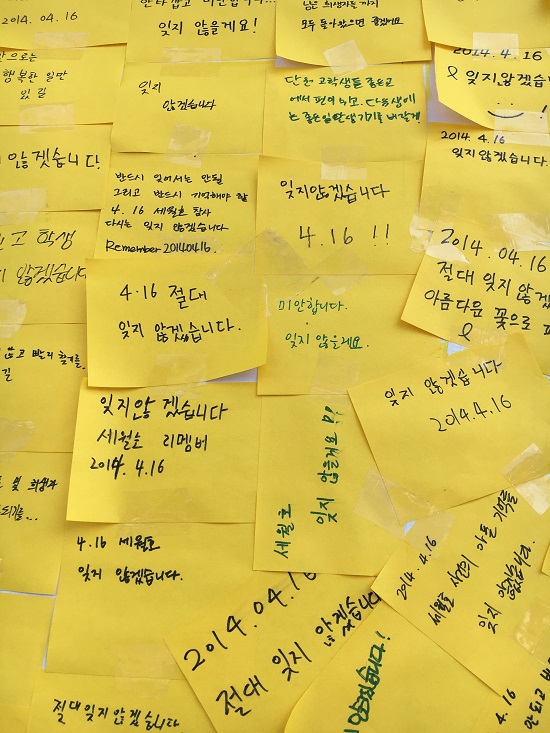 2014. 04. 16
잊지 않을게요!
모두 돌아왔으면 좋겠어요
행복한 일만
있길
잊지
않겠습니다
단원고 학생들 좋은곳
에서 편히 쉬고.
2014. 4. 16
잊지않겠습니다
2014. 4. 16
잊지 않겠습니다.
않겟습니다!
반드시 잊어서는 안될
그리고 반드시 기억해야 할
4. 16 세월호 참사
다시는 잊지 않겠습니다.
Remember 20140416.
잊지않겠습니다
4. 16 !!
고 학생
않겠습니다
2014. 04. 16
절대 잊지 않겠
아름다운 꽃으로
4.16 절대
잊지 않겠습니다.
미안합니다.
잊지 않을게요.
잊지않겠습니다
세월호 리멤버
2014. 4.16
잊지 않겠습니다
2014.4.16
세월호
잊지 않을게요
4.16 세월호
잊지 않겠습니다.
2014. 4. 16
세월호 사건의 아픈 기억을
잊지 않겠습니다.
2014.04.16
절대 잊지 않겠습니다
절대잊지않겠습니다
4.16